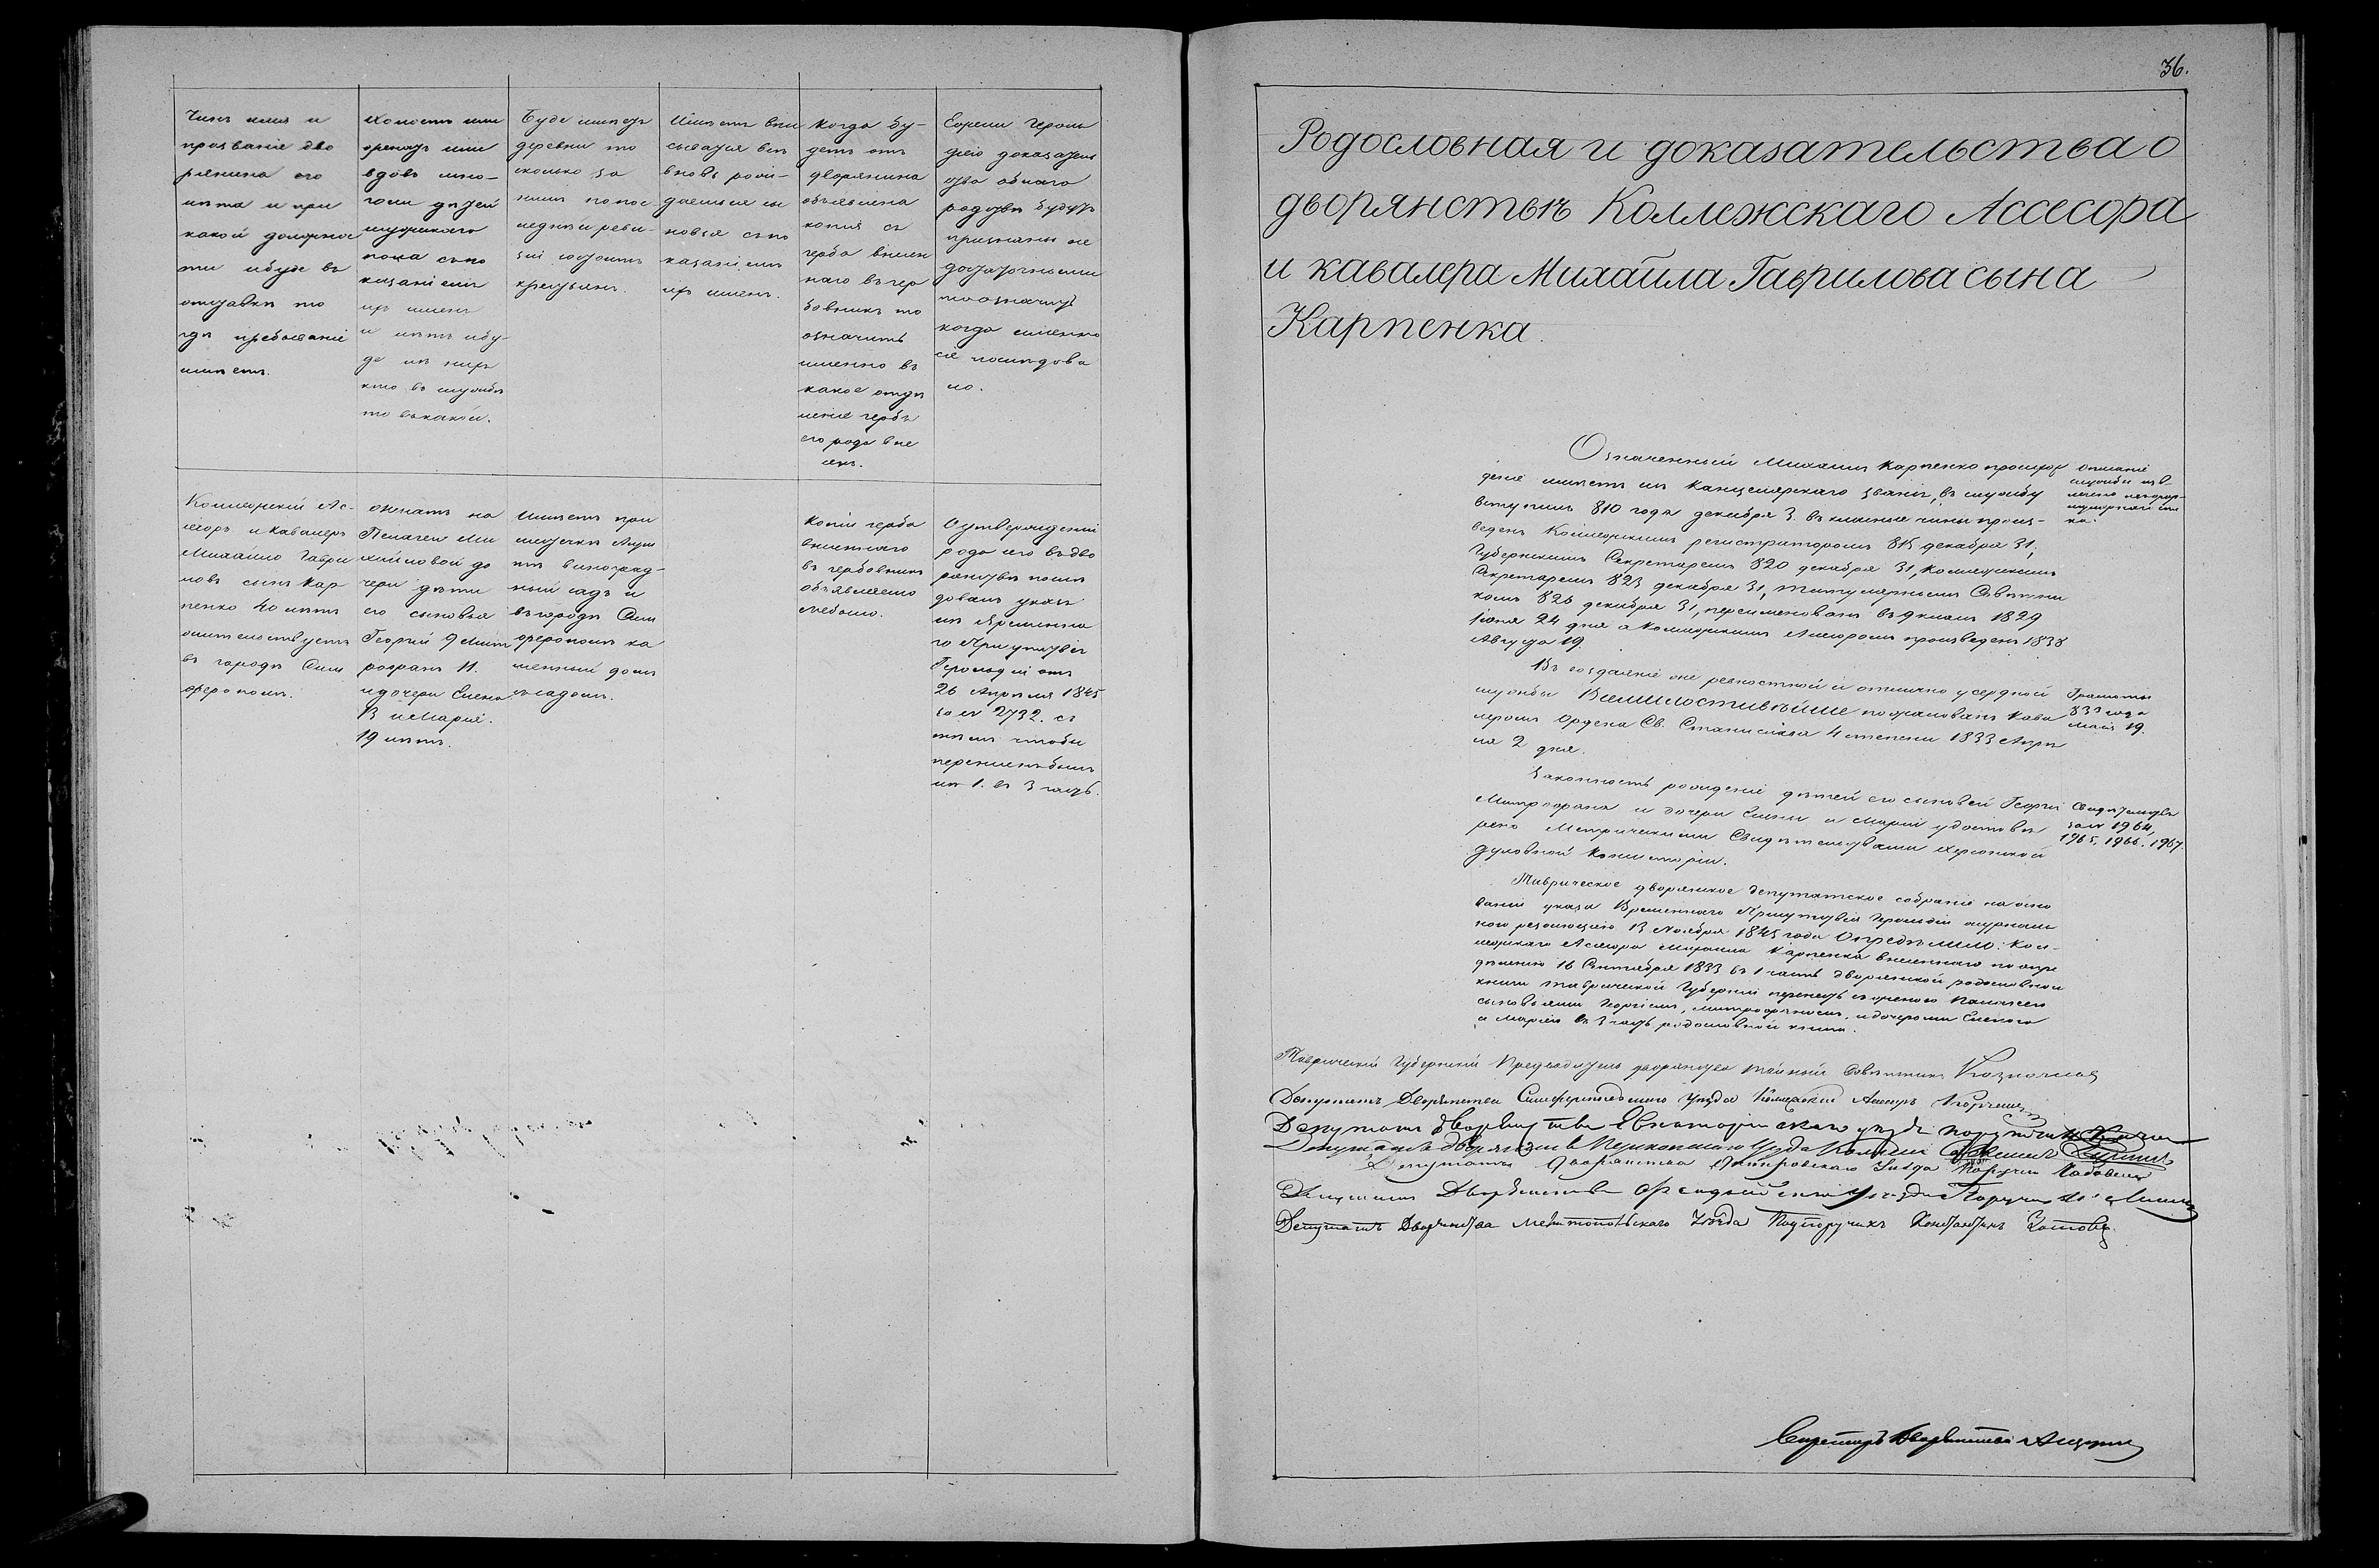 Чинъ имя и
прозваніе дво
рянина его
лѣта и при
какой должнос
ти ибуде въ
отставкѣ то
гдѣ пребываніе
имѣетъ.
Холостъ или
женатъ или
вдовъ мно-
голи дѣтей
мужескаго
пола съпо
казаніемъ
ихъ именъ
и лѣтъ ибу-
де изъ нихъ
кто въ службѣ
то въкакой.
Буде имѣетъ
деревни то
сколько за
нимъ попос
ледней реви-
зіи состоитъ
крестьянъ.
Имѣетъ впи
сыватся всѣ
вновь рож-
даемые сы
новья съпо
казаніемъ
ихъ именъ.
Когда бу-
детъ отъ
дворянина
объявлена
копія съ
герба внесен
наго въгер
бовникъ то
означить
именно въ
какое отдѣ
леніе гербъ
его рода вне
сенъ.
Ежели Героль
діею доказатель
ства обнаго
родствѣ будутъ
признаны не
достаточными
тоозначить
когда именно
сіе последова
ло.
Коллежскій Ас-
сесоръ и Кавалеръ
Михайло Гаври
ловъ сынъ Кар
пенко 40 лѣтъ
жительствуетъ
въ городѣ Сим
ферополѣ.
женатъ на
Пелагеи Ми
хайловой до
чери дѣти
его сыновья
Георгій 9 Мит
рофанъ 11.
идочери Елена
13 иМарія.
19 лѣтъ.
Имѣетъ при
мѣстечкѣ Алуш
тѣ виноград-
ный садъ и
въгородѣ Сим
ферополѣ ка
менный домъ
съсадомъ.
Копіи герба
внесеннаго
въ гербовникъ
объявляемо
небыло.
О утвержденіи
рода его въдво
рянствѣ послѣ
довалъ указъ
изъ Временна
го Присутствія
Герольдіи отъ
26 Апрѣля 1845
за № 2732. съ
тѣмъ чтобы
перенесенъбылъ
изъ 1. въ 3 часть.
36.
Родословная и доказательства о
дворянствѣ Коллежскаго Ассесора
и кавалера Михайла Гаврилова сына
Карпенка.
Означенный Михаилъ Карпенко происхож
деніе имѣетъ изъ Канцелярскаго званія, въ службу
вступилъ 810 года декабря 3. въ классные чины произ-
веденъ Коллежскимъ регистраторомъ 815 декабря 31,
Губернскимъ Секретаремъ 820 декабря 31, Коллежскимъ
Секретаремъ 823 декабря 31, титулярнымъ Совѣтни
комъ 826 декабря 31, переименованъ въ9 классъ 1829
Іюня 24 дня а Коллежскимъ Ассесоромъ произведенъ 1838
Августа 19.
Описаніе
службы изъ
лично
Въ воздаяніе его ревностной и отлично усердной
службы Всемилостивѣйше пожалованъ Кава
леромъ Ордена Св. Станислава 4 степени 1833 Апрѣ
ля 2 дня.
Грамоты
833 года
Маія 19.
Законность рожденія дѣтей его сыновей Георгія
Митрофана и дочери Елены и Маріи удостовѣ
рено Метрическими Свидѣтельствами Херсонской
духовной Консисторіи.
Свидѣтельства
за№ 1964,
1965, 1966, 1967.
Таврическое дворянское депутатское собраніе на осно
ваніи указа Временнаго Присутствія Герольдіи журналь
ною резолюціею 13 Ноября 1845 года Опредѣлило: Кол-
лежскаго Ассесора Михаила Карпенка внесеннаго по опре
дѣленію 16 Сентября 1833 въ 1 часть дворянской родословной
книги Таврической Губерніи перенесть съженою Палагеею
сыновьями Георгіемъ, Митрофаномъ, идочерьми Еленою
и Маріею въ 3 часть родословной книги.
Таврическій Губернскій Предводитель дворянства тайный Совѣтникъ Казначеев
Депутатъ Дворянства Симферопольскаго Уѣзда Коллежскій Ассесоръ
Депутатъ дворянства Евпаторійскаго уѣзда поручикъ
Депутатъ дворянства Перекопскаго Уѣзда
Депутатъ Дворянства Днепровскаго Уѣзда
Депутатъ Дворянства Феодосійскаго Уѣзда Поручикъ
Депутатъ Дворянства Мелитопольскаго Уѣзда Подпоручикъ Константинъ
Секретарь Дворянства